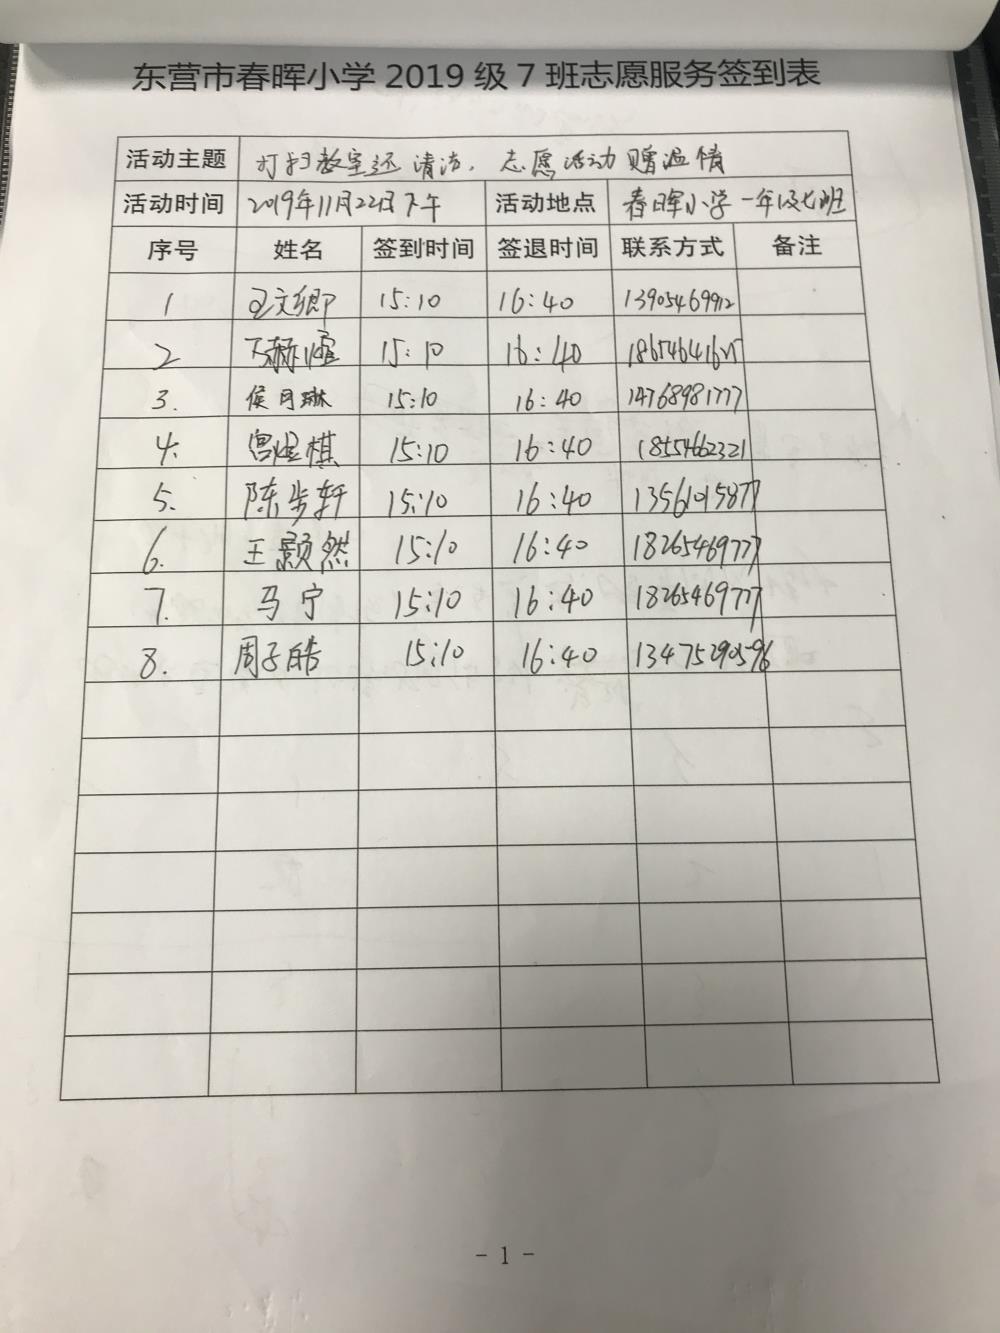 东营市春晖小学2019级7班志愿服务签到表
活动主题 打扫教室还清洁，志愿活动赠温情
活动时间 2019年11月22日下午 活动地点 春晖小学一年级七班
序号 姓名 签到时间 签退时间 联系方式 备注
1 文卿 15:10 16:40 13905469912
2 15:10 16:40
3. 侯月琳 15:10 16:40 14768981777
4. 宫煜棋 15:10 16:40 18554662321
5. 陈步轩 15:10 16:40 13561015877
6. 王颢然 15:10 16:40 18265469777
7. 马宁 15:10 16:40 18265469777
8. 周子皓 15:10 16:40 13475290596
- 1 -